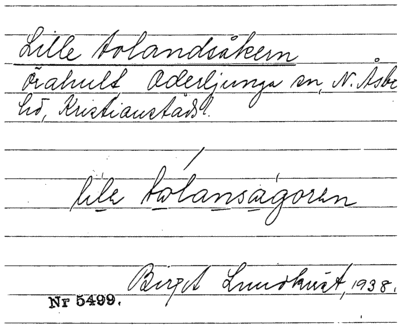 Lille tolandsåkern
Örahult Oderljunga sn, N. Åsbo
hd, Kristianstads l.
lile tolansagoren
Birgit Lundkvist, 1938.
Nr 5499.